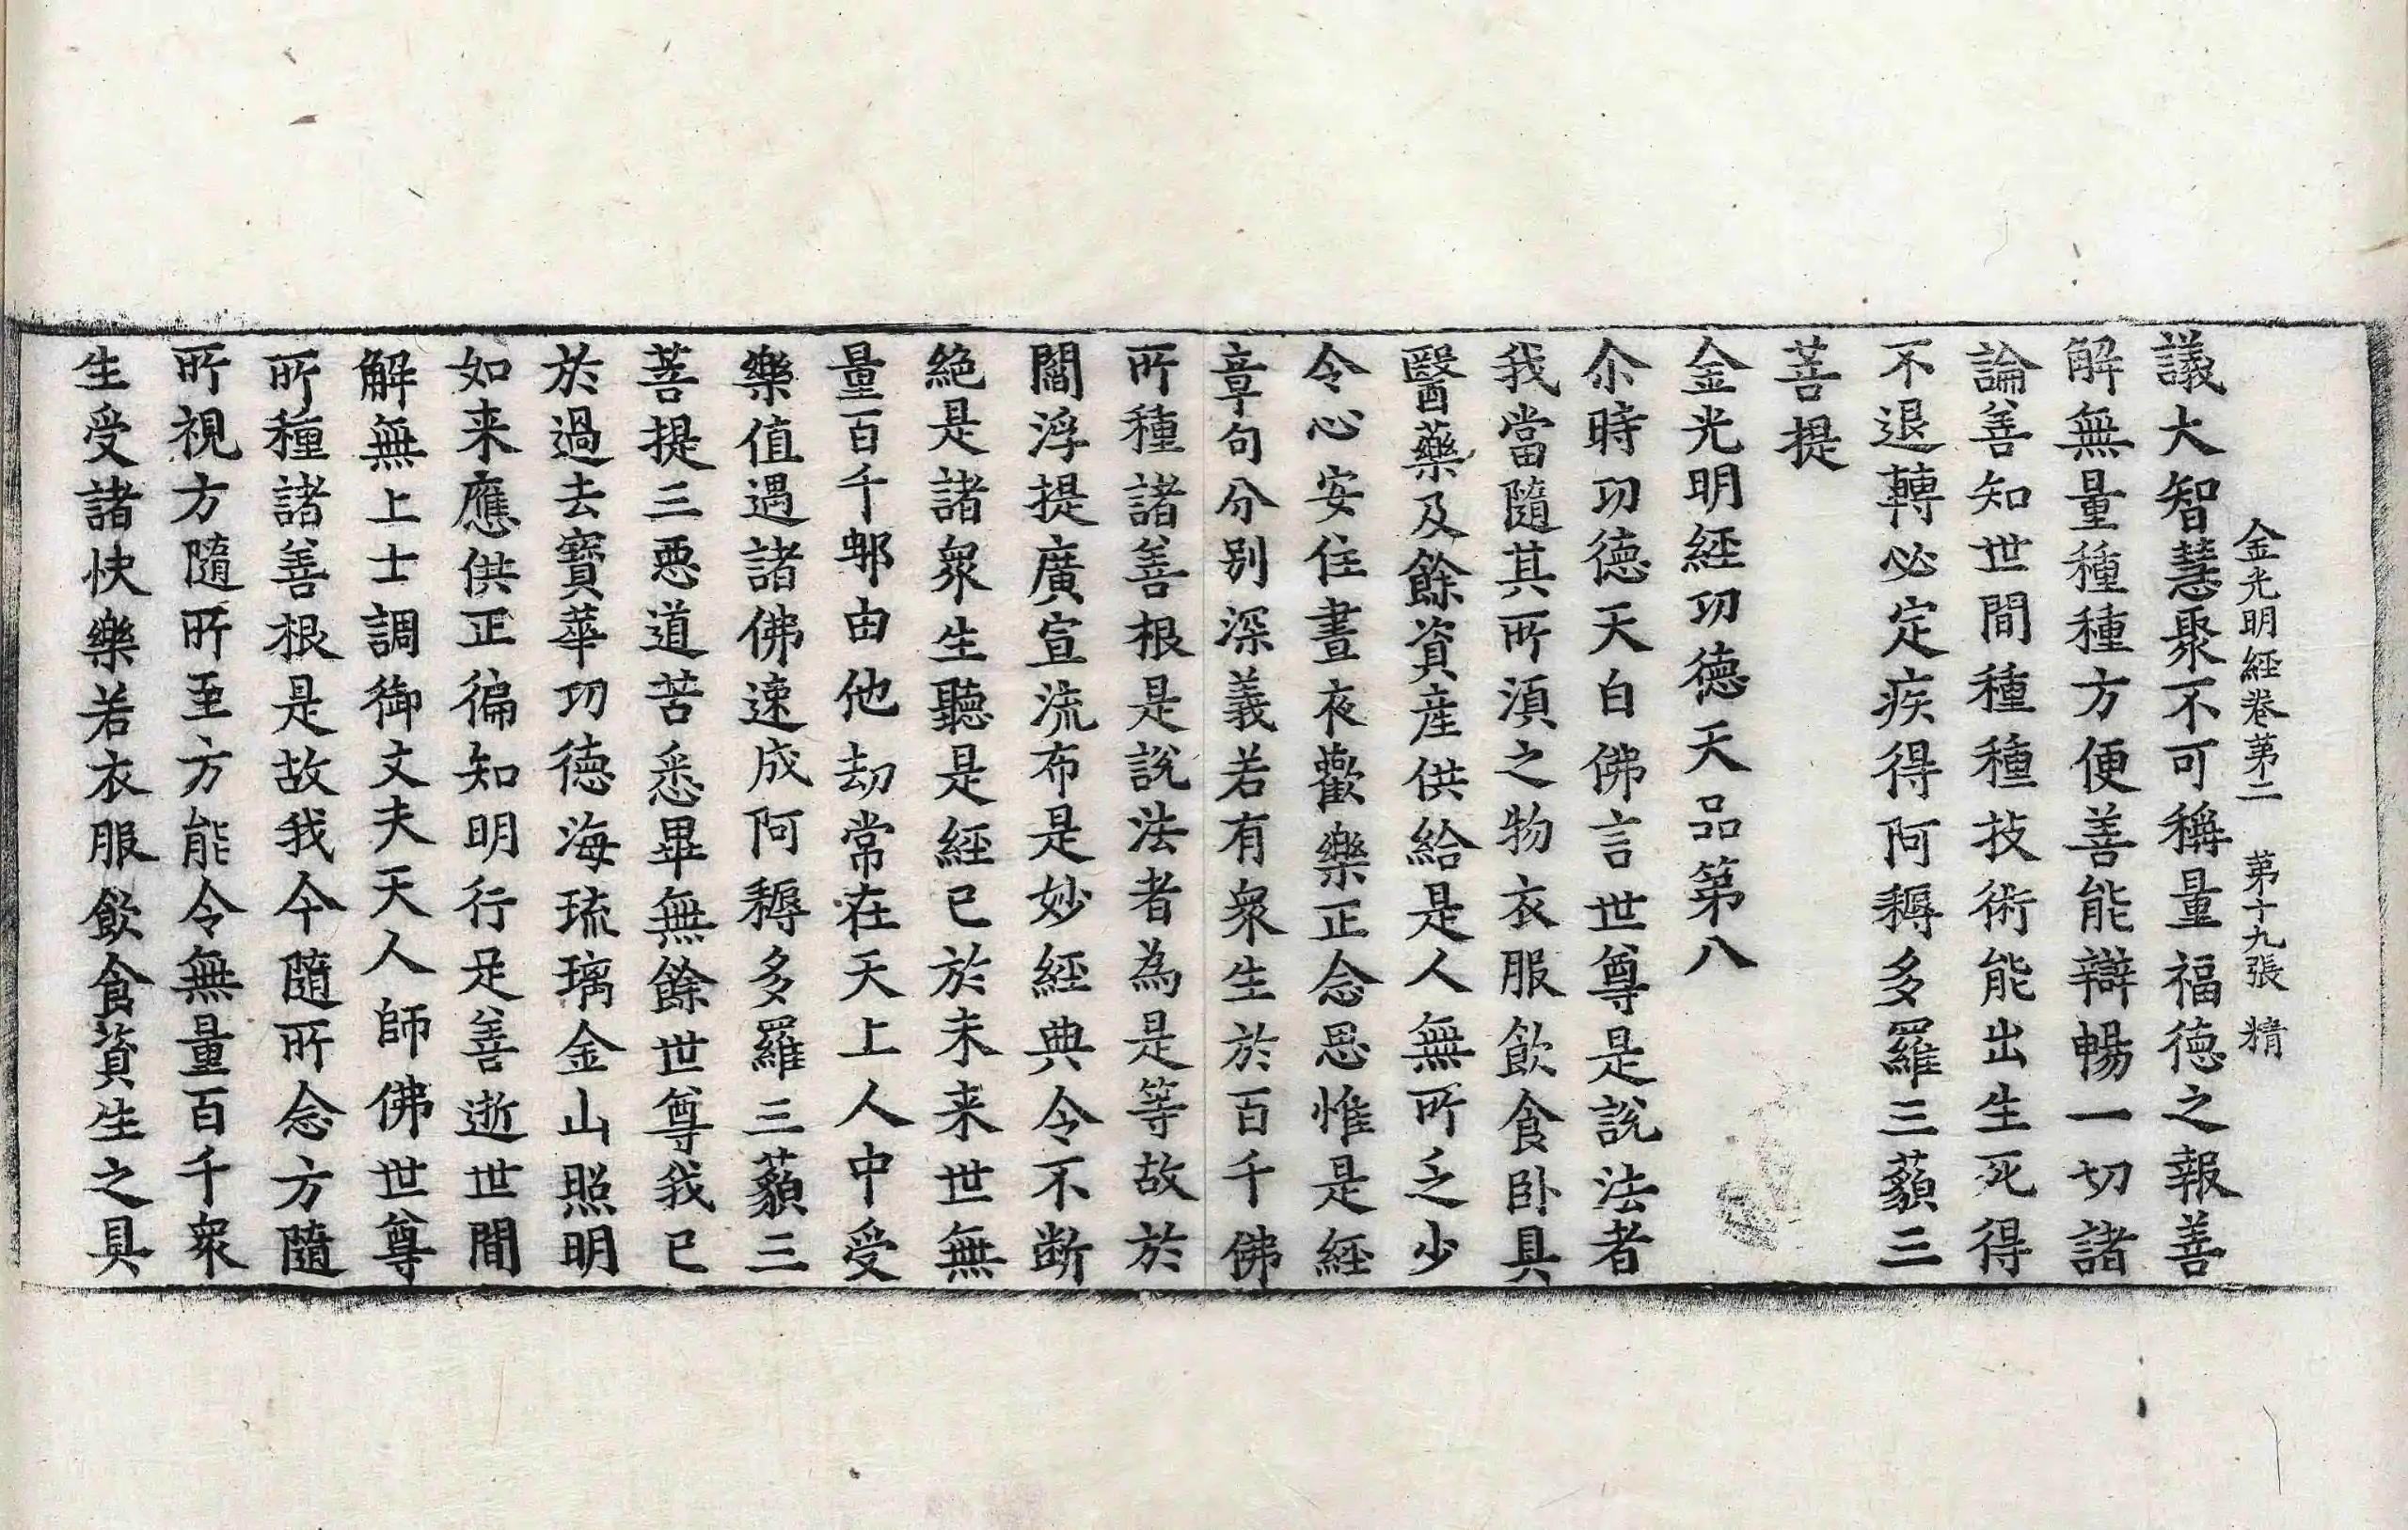 金光明經卷第二　第十九張　精
議大智慧聚不可稱量福德之報善
解無量種種方便善能辯暢一切諸
論善知世間種種技術能出生死得
不退轉必定疾得阿耨多羅三藐三
菩提
金光明經功德天品第八
尒時功德天白佛言世尊是說法者
我當隨其所湏之物衣服飲食卧具
醫藥及餘資產供給是人無所乏少
令心安住晝夜歡樂正念思惟是經
章句分別深義若有衆生於百千佛
所種諸善根是說法者為是等故於
閻浮提廣宣流布是妙經典令不斷
絕是諸衆生聽是經已於未来世無
量百千那由他劫常在天上人中受
樂值遇諸佛速成阿耨多羅三藐三
菩提三惡道苦悉畢無餘世尊我已
於過去寶華功德海琉璃金山照明
如来應供正徧知明行足善逝世間
解無上士調御丈夫天人師佛世尊
所種諸善根是故我今隨所念方隨
所視方隨所至方能令無量百千衆
生受諸快樂若衣服飲食資生之具